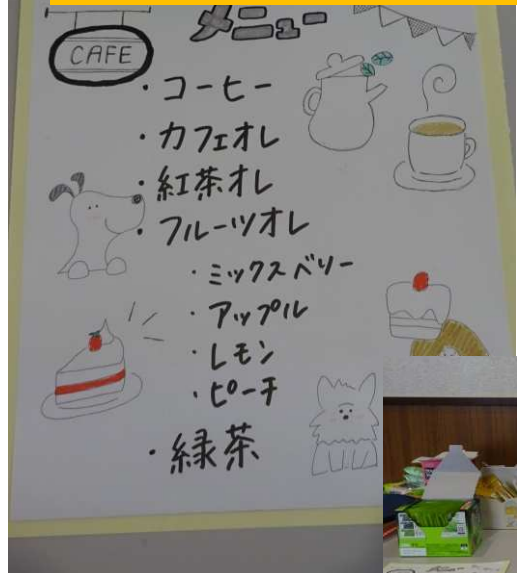 メニュー
CAFE
・コーヒー
・カフェオレ
・紅茶オレ
・フルーツオレ
・ミックスベリー
・アップル
・レモン
・ピーチ
・緑茶